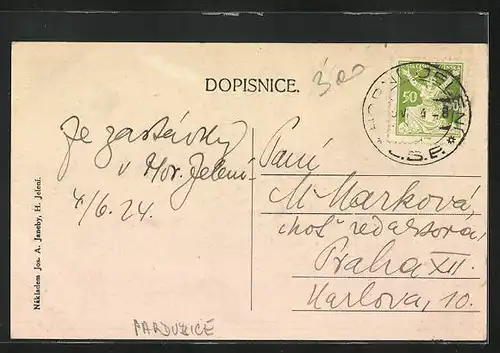 DOPISNICE.
300
50
HORNÍ JELENÍ
Č.S.P.
Ze zastávky
v Hor. Jelení
4/6. 24.
Paní
M Marková,
choť redaktora,
Praha XII.
Karlova, 10.
Nákladem Jos. A. Janeby, H. Jelení.
PARDUBICE